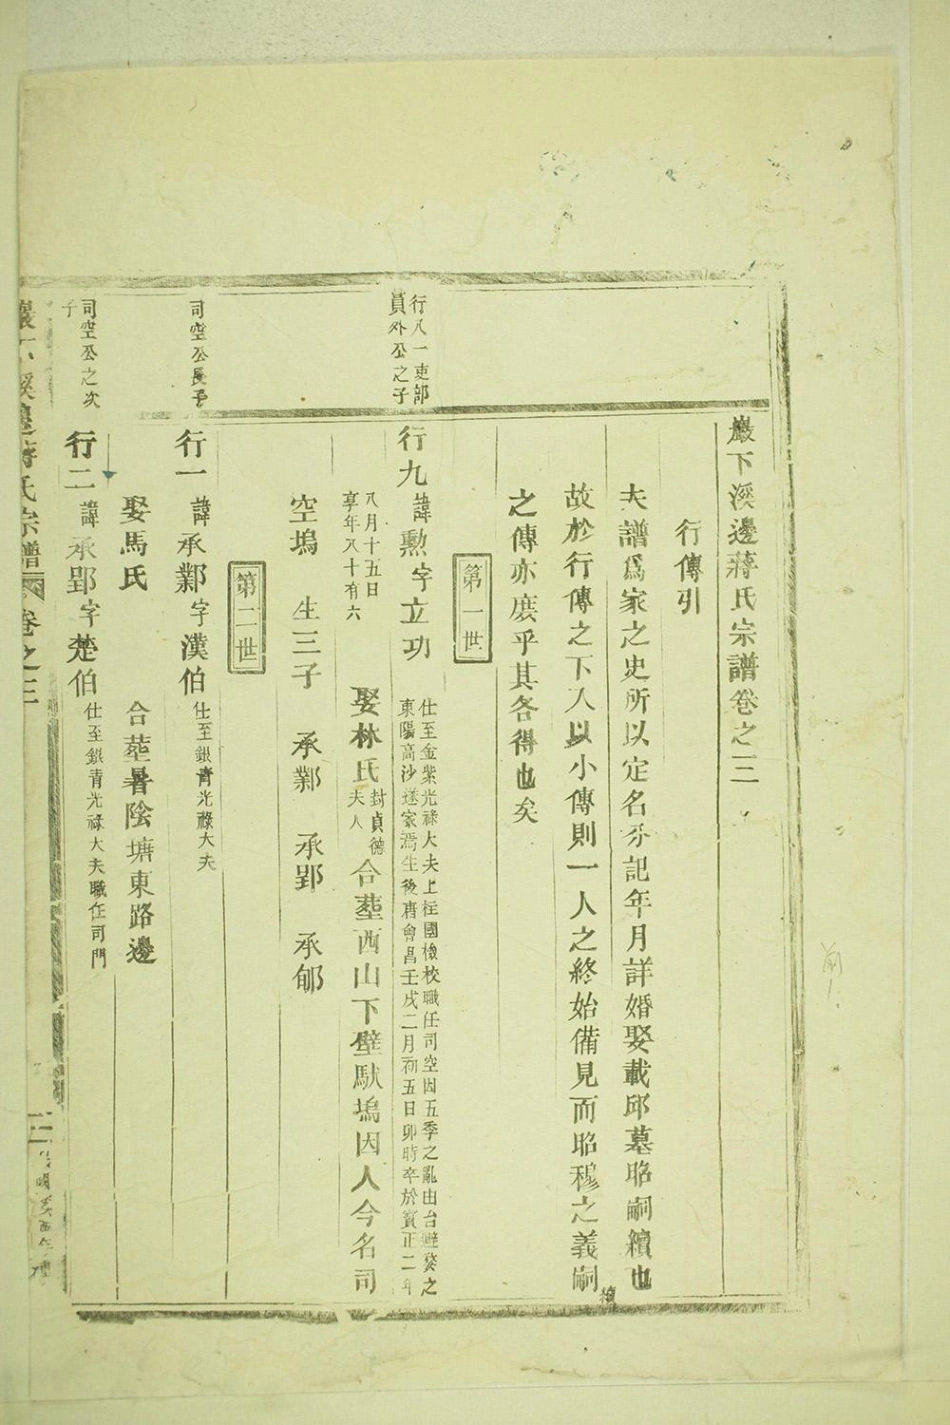 巖下溪邊蔣氏宗譜卷之三
行傳引
夫譜爲家之史所以定名分記年月詳婚娶載邱墓昭嗣續也
故於行傳之下入以小傳則一人之終始備見而昭穆之義嗣
續
之傳亦庶乎其各得也矣
第一世
行八一吏部
員外公之子
行九諱勲字立功
仕至金紫光祿大夫上柱國檢校職任司空因五季之亂由台避婺之
東陽高沙遂家焉生後唐會昌壬戌二月初五日卯時卒於寳正二年
八月十五日
享年八十有六
娶林氏
封貞德
夫人
合塟西山下壁馱塢因人今名司
空塢 生三子 承鄴 承郢 承郇
第二世
司空公長子
行一諱承鄴字漢伯
仕至銀青光祿大夫
娶馬氏 合塟暑陰塘東路邊
司空公之次
子
行二諱承郢字楚伯
仕至銀青光祿大夫職任司門
溪邊蔣氏宗譜 卷之三